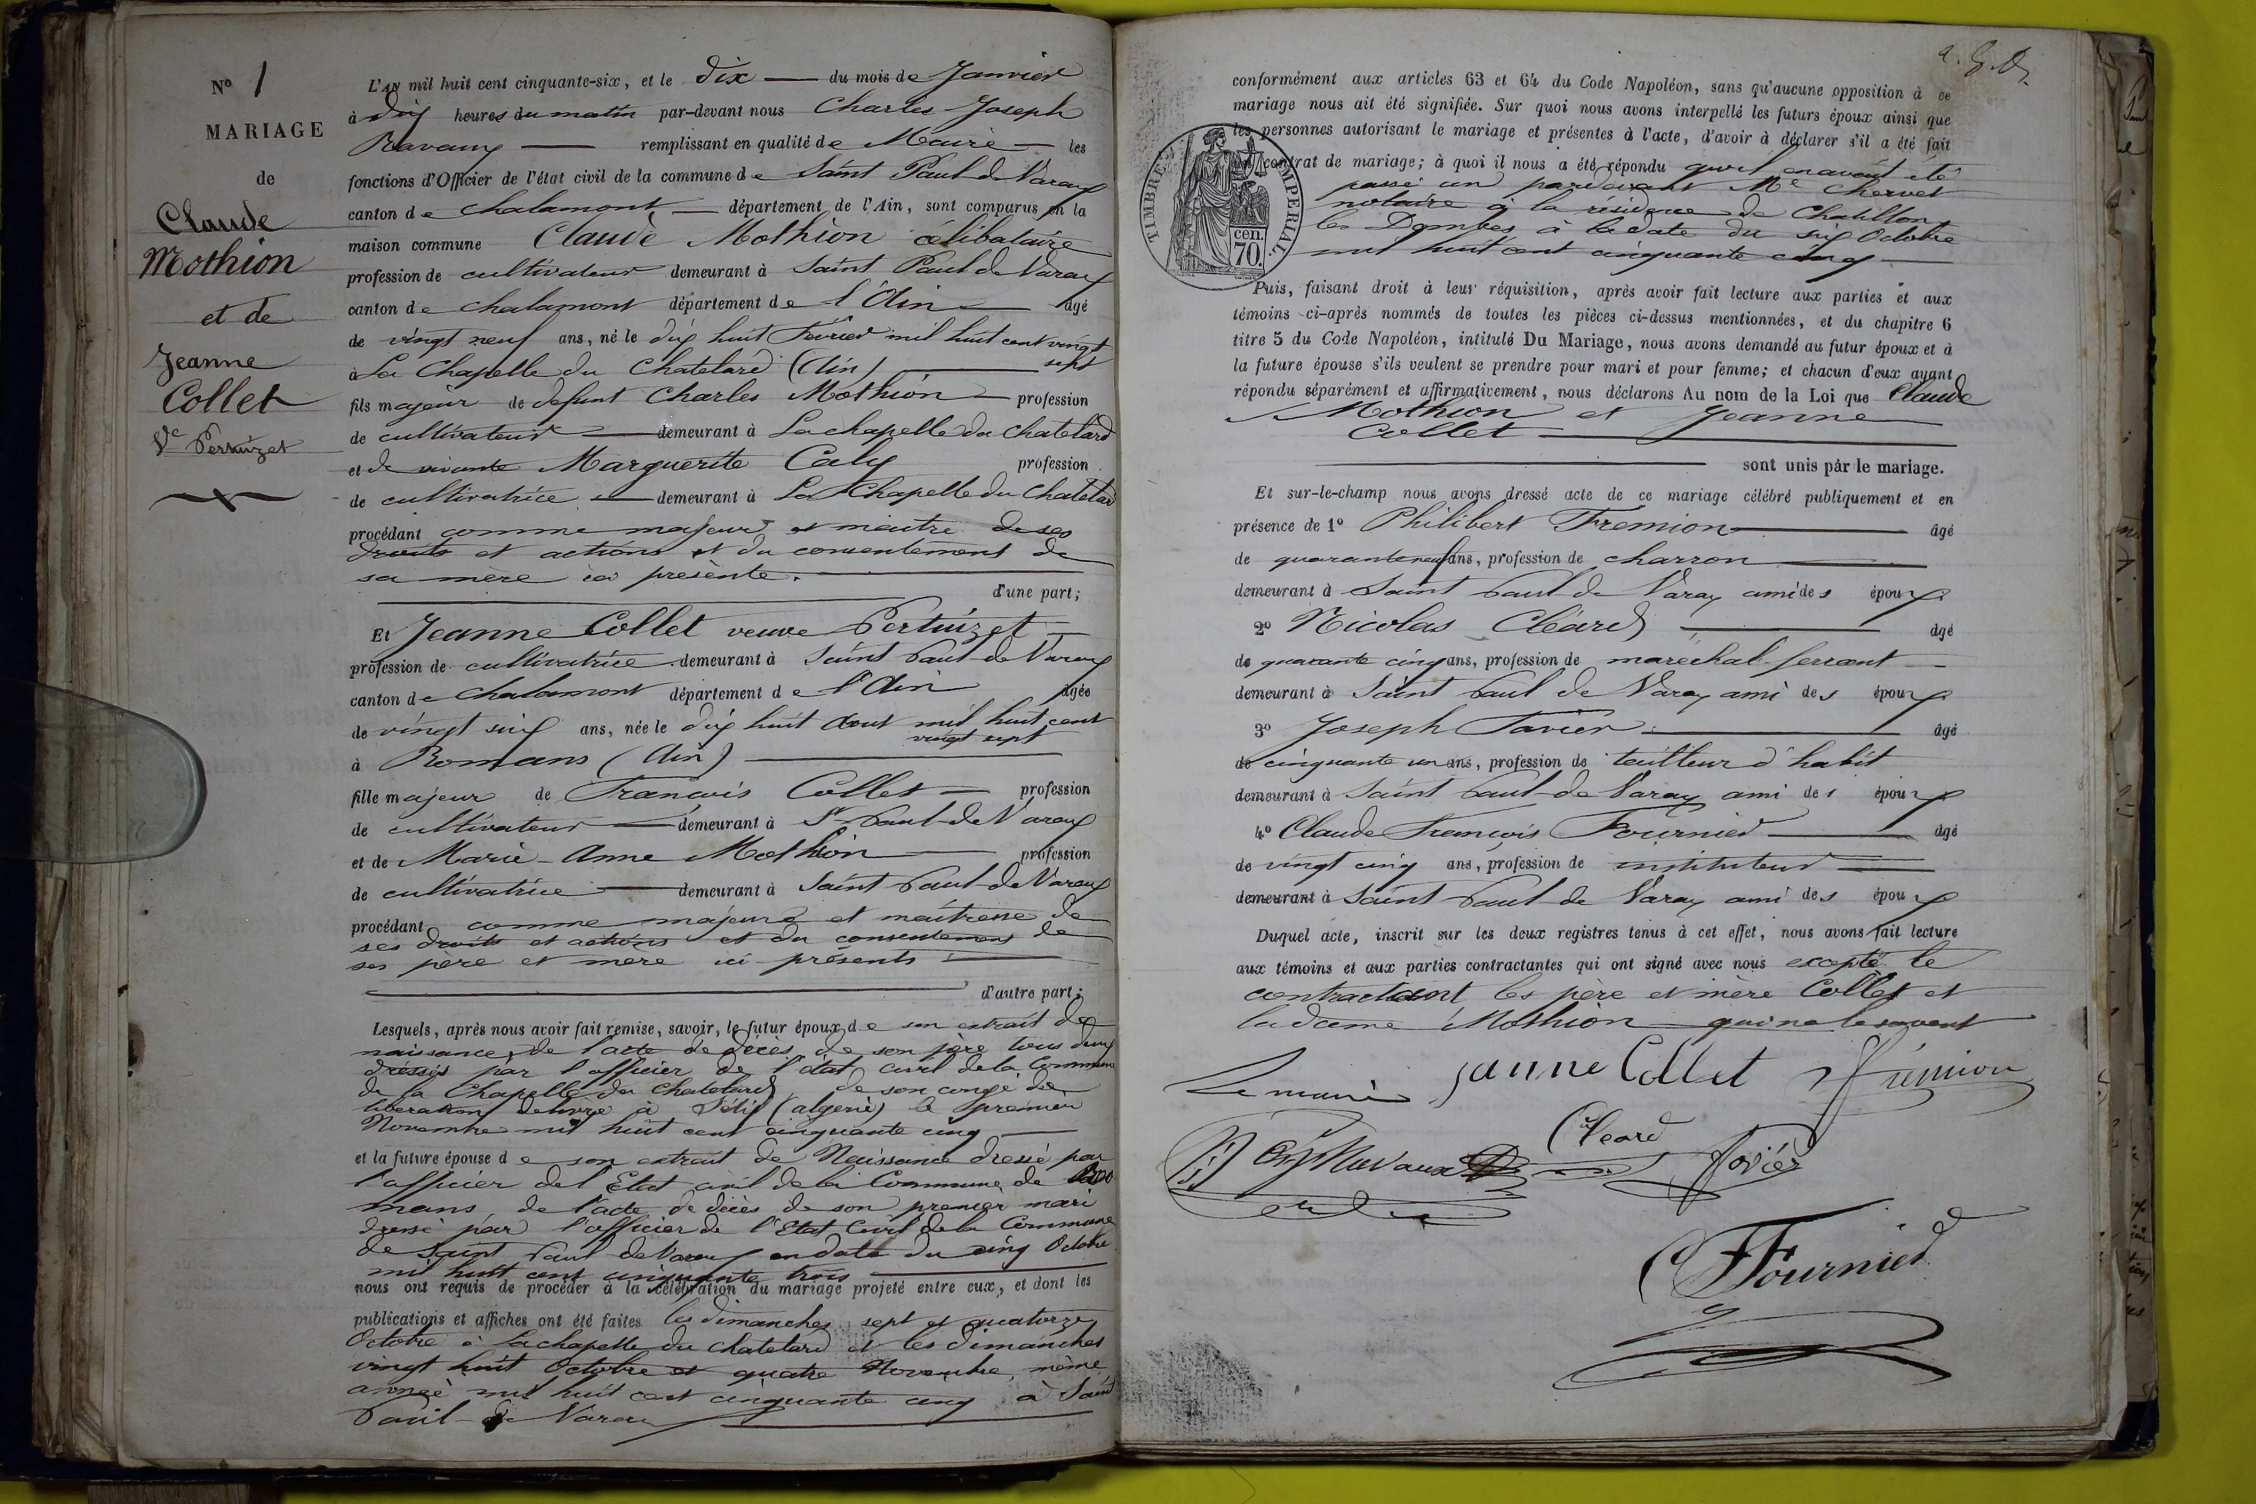 N° 1
MARIAGE
de
Claude
Mothion
et de
Jeanne
Collet
Ve Pertuizet
L'AN mil huit cent cinquante-six, et le dix du mois de Janvier
à dix heures du matin par-devant nous Charles Joseph
Ravaux remplissant en qualité de Maire les
fonctions d'Officier de l'état civil de la commune de Saint Paul de Varax
canton de chalamont département de l'Ain, sont comparus en la
maison commune Claude Mothion célibataire
profession de cultivateur demeurant à Saint Paul de Varax
canton de chalamont département de l'Ain âgé
de vingt neuf ans, né le dix huit Février mil huit cent vingt
sept
à La Chapelle du Chatelard (Ain)
fils majeur de defunt Charles Mothion profession
de cultivateur demeurant à La chapelle du Chatelard
et de vivante Marguerite Caly profession
de cultivatrice demeurant à La Chapelle du Chatelard
procédant comme majeur et maitre de ses
droits et actions et du consentement de
sa mère ici présente.
d'une part;
Et Jeanne Collet veuve Pertuizet
profession de cultivatrice demeurant à Saint Paul de Varax
canton de Chalamont département de l'Ain âgée
de vingt six ans, née le dix huit Aout mil huit cent
vingt sept
à Romans (Ain)
fille majeur de Francois Collet profession
de cultivateur demeurant à St Paul de Varax
et de Marie-Anne Mothion profession
de cultivatrice demeurant à Saint Paul de Varax
procédant comme majeure et maitresse de
ses droits et actions et du consentement de
ses père et mère ici présents
d'autre part;
Lesquels, après nous avoir fait remise, savoir, le futur époux de son extrait de
naissance, de l'acte de décès de son père tous deux
dressés par l'officier de l'état civil de la Commune
de la Chapelle du Chatelard, de son congé de
libération délivré à Sétif (algerie) le premier
Novembre mil huit cent cinquante cinq
et la future épouse de son extrait de Naissance dressé par
l'officier de l'Etat civil de la Commune de Ro
mans, de l'acte de décès de son premier mari
dressé par l'officier de l'Etat Civil de la Commune
de Saint Paul de Varax en date du cinq Octobre
mil huit cent cinquante trois
nous ont requis de procéder à la célébration du mariage projeté entre eux, et dont les
publications et affiches ont été faites les dimanches sept et quatorze
Octobre à Lachapelle du Chatelard et les dimanches
vingt huit Octobre et quatre Novembre, même
année mil huit cent cinquante cinq à Saint
Paul de Varax
conformément aux articles 63 et 64 du Code Napoléon, sans qu'aucune opposition à ce
mariage nous ait été signifiée. Sur quoi nous avons interpellé les futurs époux ainsi que
les personnes autorisant le mariage et présentes à l'acte, d'avoir à déclarer s'il a été fait
contrat de mariage; à quoi il nous a été répondu qu'il en avait été
passé un pardevant Me Chervet
notaire à la résidence de Chatillon
les Dombes à la date du six Octobre
mil huit cent cinquante cinq
TIMBRE IMPERIAL
70 cen.
Puis, faisant droit à leur réquisition, après avoir fait lecture aux parties et aux
témoins ci-après nommés de toutes les pièces ci-dessus mentionnées, et du chapitre 6
titre 5 du Code Napoléon, intitulé Du Mariage, nous avons demandé au futur époux et à
la future épouse s'ils veulent se prendre pour mari et pour femme; et chacun d'eux ayant
répondu séparément et affirmativement, nous déclarons Au nom de la Loi que Claude
Mothion et Jeanne
Collet
sont unis par le mariage.
Et sur-le-champ nous avons dressé acte de ce mariage célébré publiquement et en
présence de 1° Philibert Fremion âgé
de quarante neuf ans, profession de charron
demeurant à Saint Paul de Varax ami des époux
2° Nicolas Cléard âgé
de quarante cinq ans, profession de maréchal ferrant
demeurant à Saint Paul de Varax ami des époux
3° Joseph Favier âgé
de cinquante un ans, profession de tailleur d'habit
demeurant à Saint Paul de Varax ami des époux
4° Claude Francois Fournier âgé
de vingt cinq ans, profession de instituteur
demeurant à Saint Paul de Varax ami des époux
Duquel acte, inscrit sur les deux registres tenus à cet effet, nous avons fait lecture
aux témoins et aux parties contractantes qui ont signé avec nous excepté le
contractant les père et mère Collet et
la dame Mothion qui ne le savent
Le maire
Janne Collet
Frémion
Ravaux
Cleard
Favier
Fournier